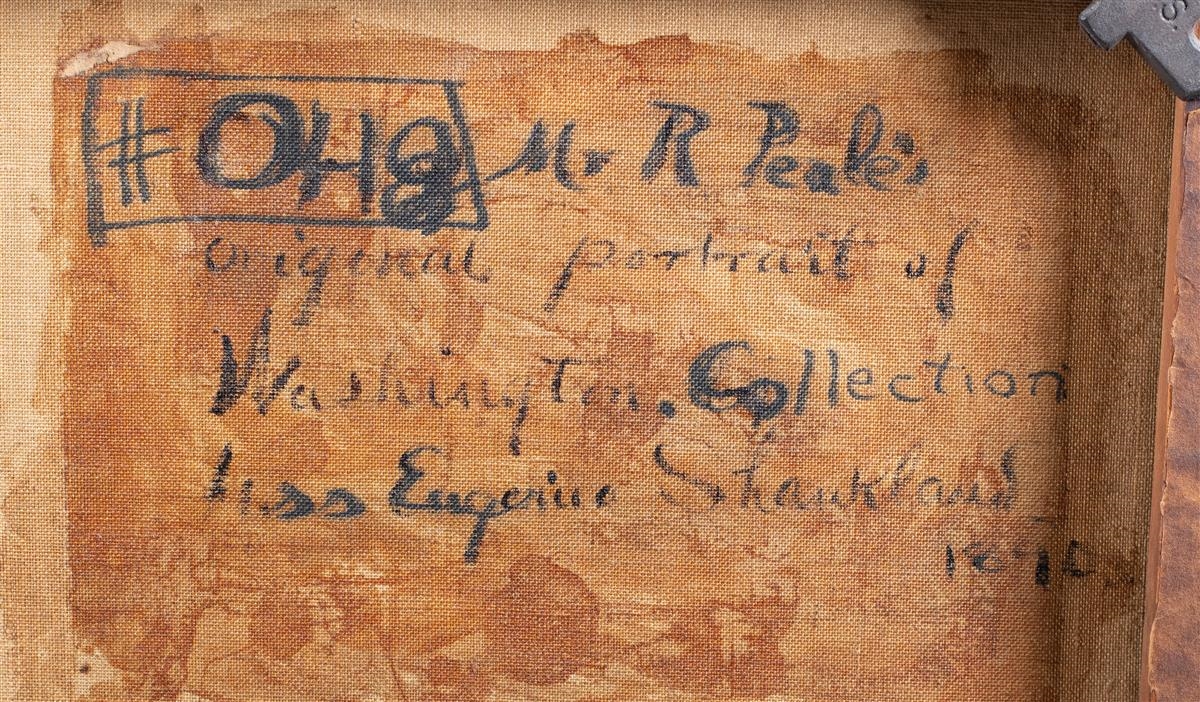 #OH8 Mr R Peale's
original portrait of
Washington. Collection
Miss Eugenie Shankland